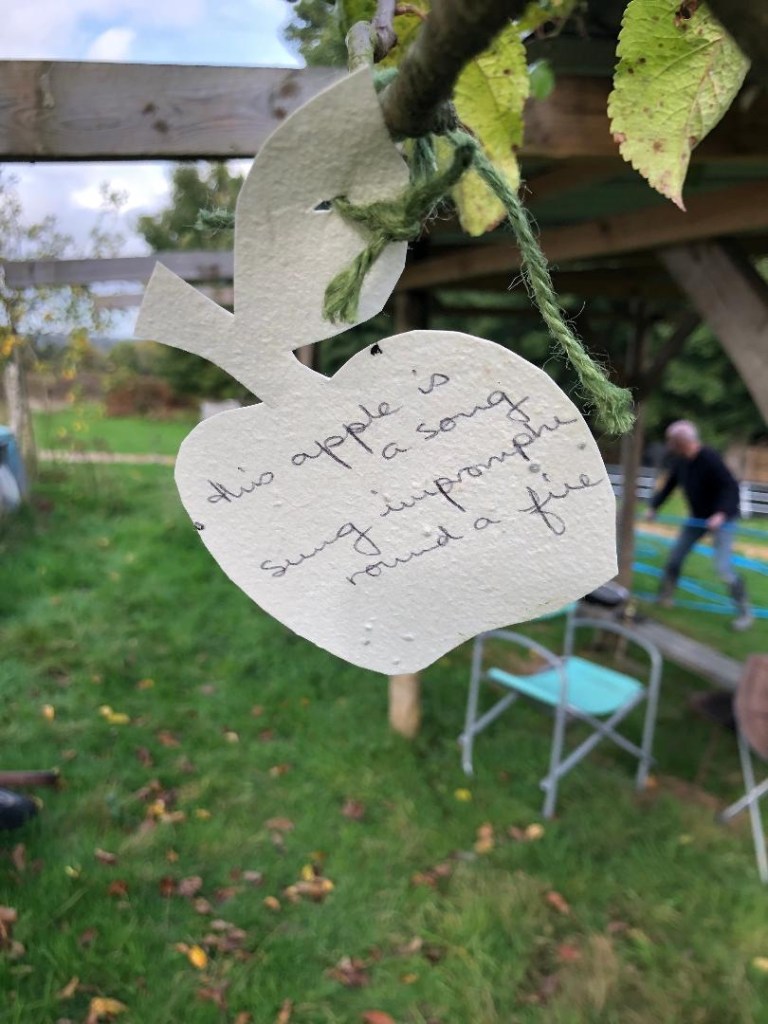 this apple is
a song
sung impromptu
round a fire